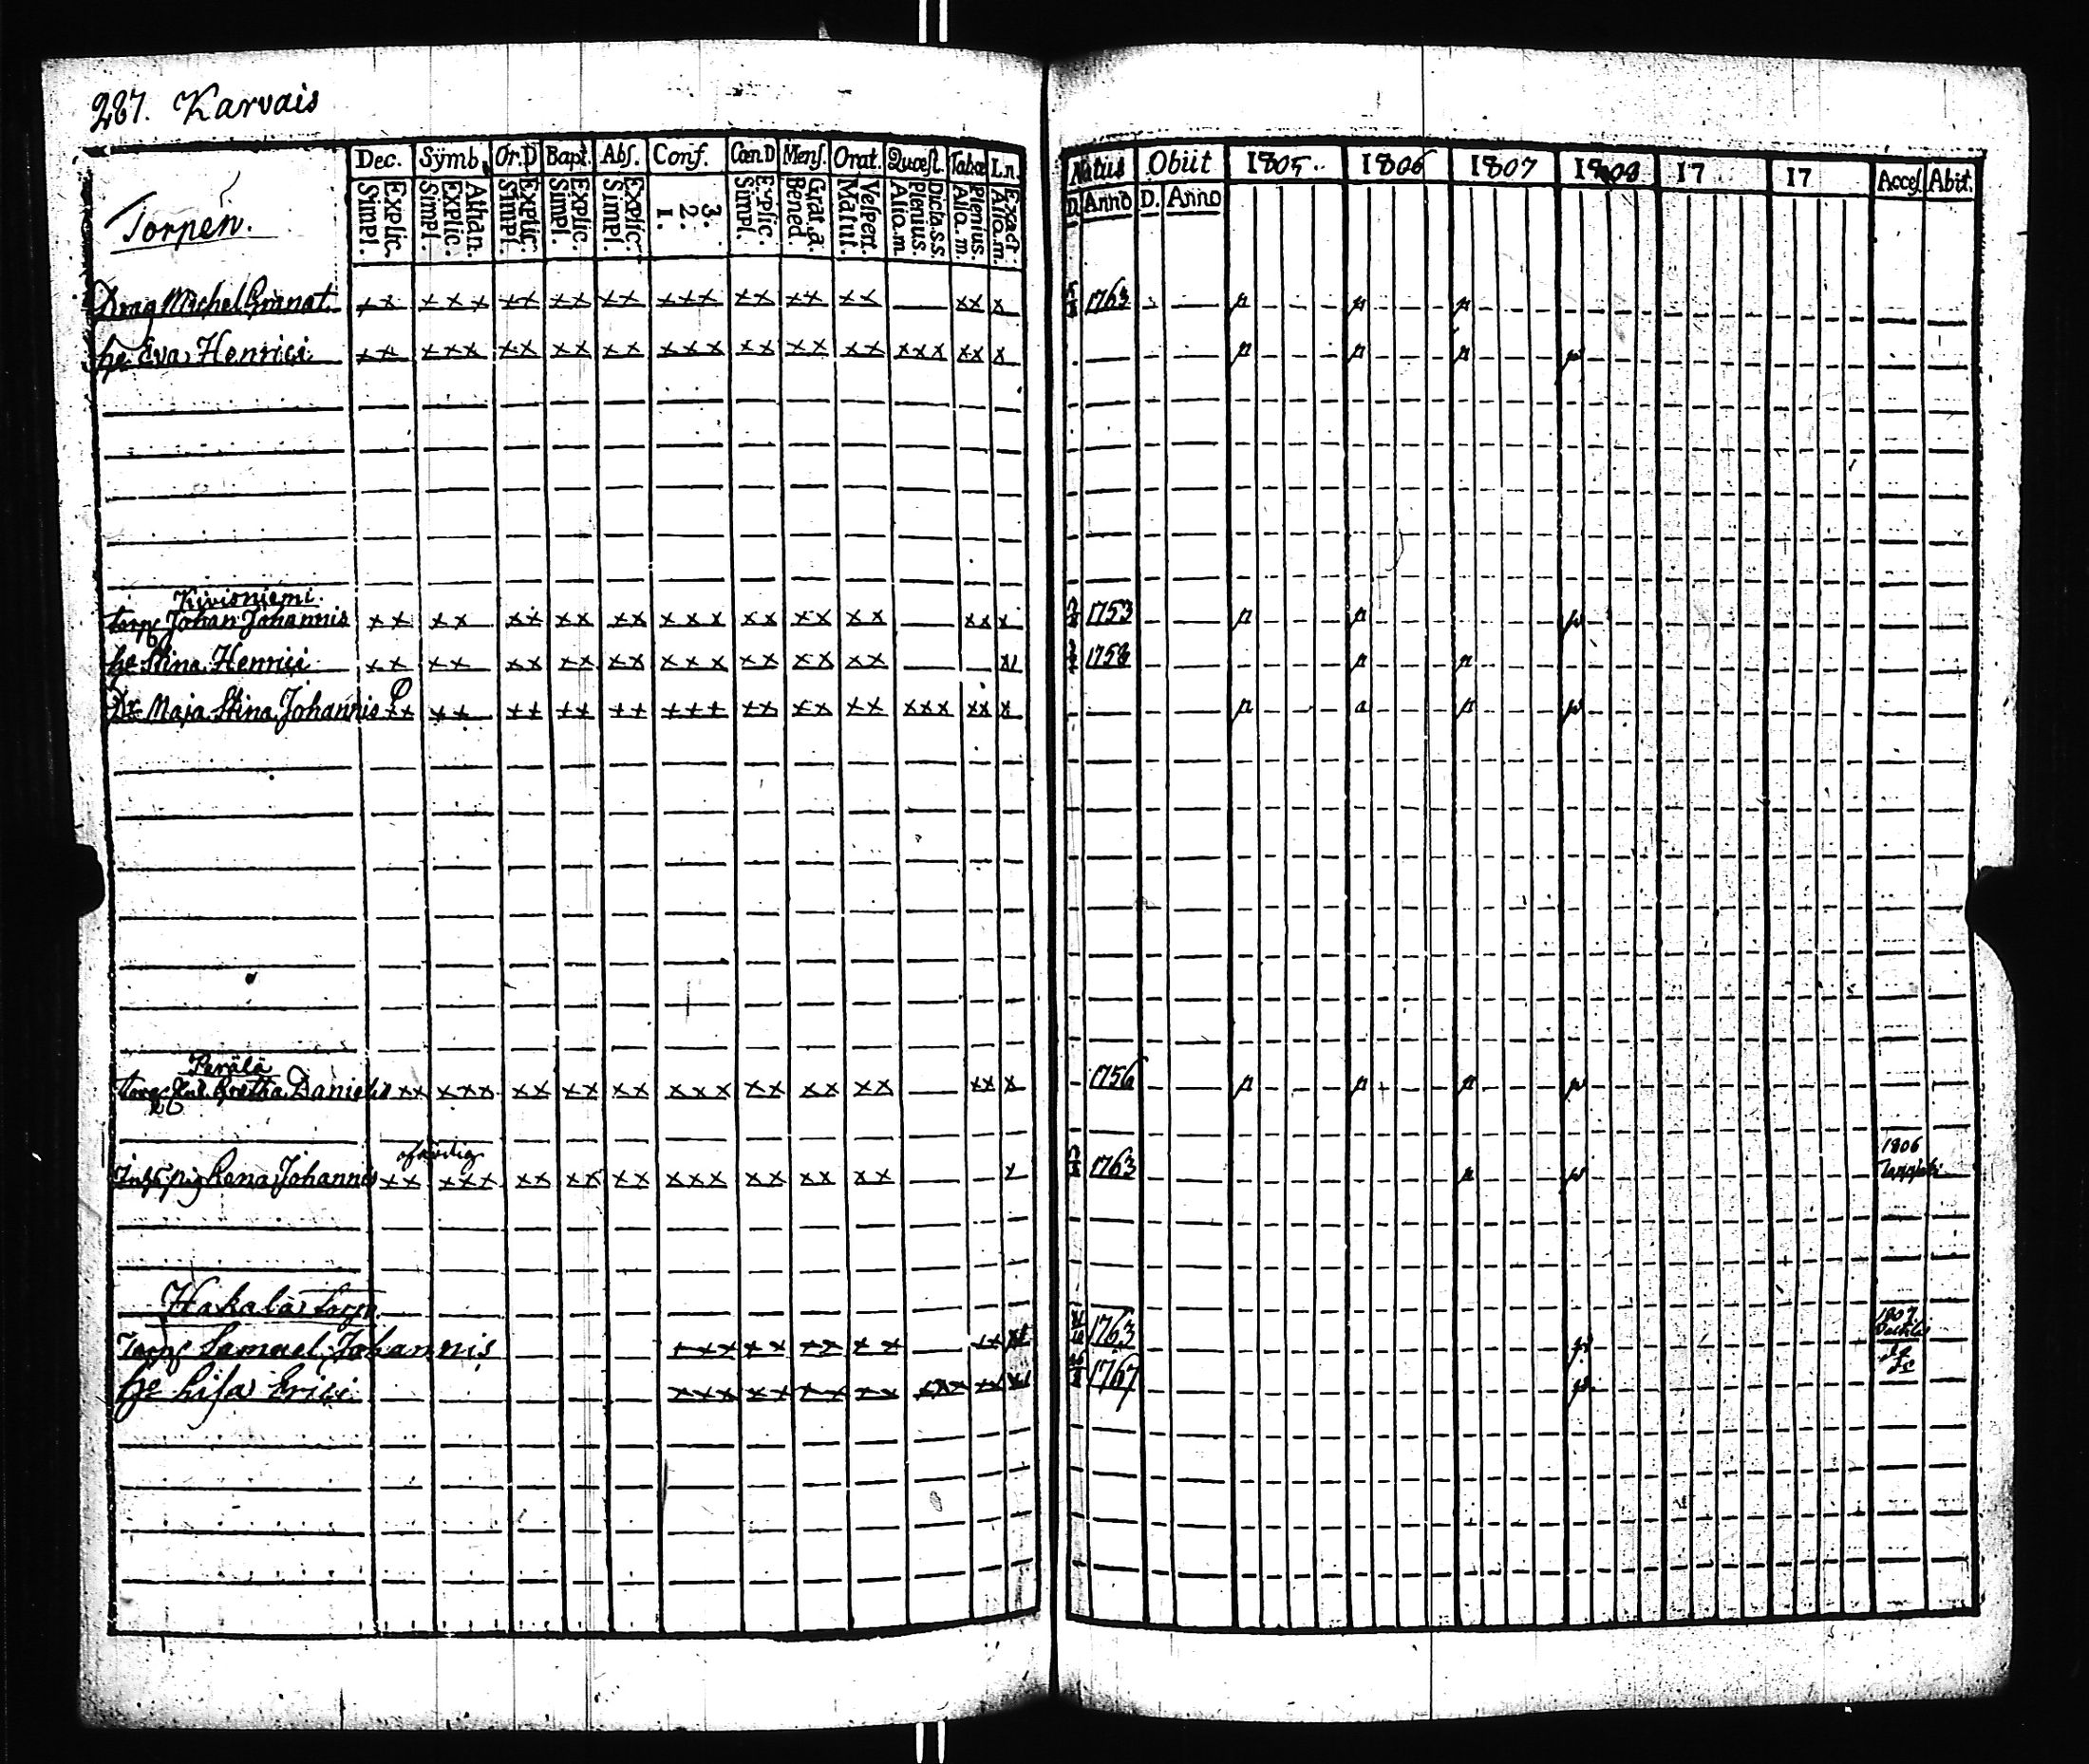 287. Karvais
Dec. Sÿmb. Or.D Bapt. Abſ. Conf. Cœn.D Menſ. Orat. Quæſt. Tabæ Ln.
Simpl. Explic. Simpl. Explic. Athan. Simpl. Explic. Simpl. Explic. Simpl. Explic. 1. 2. 3. Simpl. Explic. Bened. Grat.a. Matut. Veſpert. Alio.m Plenius. Dicta.s.s. Alio.m. Plenius. Alio.m. Exact.
Natus Obiit 1805 1806 1807 1808 17 17 Acceſ. Abit.
D. Anno D. Anno
Torpen.
Drag Michel Granat. xx xxx xx xx xx xxx xx xx xx xx x 1763
he Eva Henrici xx xxx xx xx xx xxx xx xx xx xxx xx x
Kivisniemi.
torp Johan Johannis xx xx xx xx xx xxx xx xx xx xx x 1753
he Stina Henrici xx xx xx xx xx xxx xx xx xx 1758
Dr Maja Stina Johannis xx xx xx xx xx xxx xx xx xx xxx xx x
Perälä
Gretha Danielis xx xxx xx xx xx xxx xx xx xx xx x 1756
ofärdig
pig Lena Johannis xx xxx xx xx xx xxx xx xx xx x 1763 1806
Hakala torp.
Torp Samuel Johannis xxx xx xx xx xx 1763 1807
he Lisa Erici xxx xx xx xx xxx xx 1767